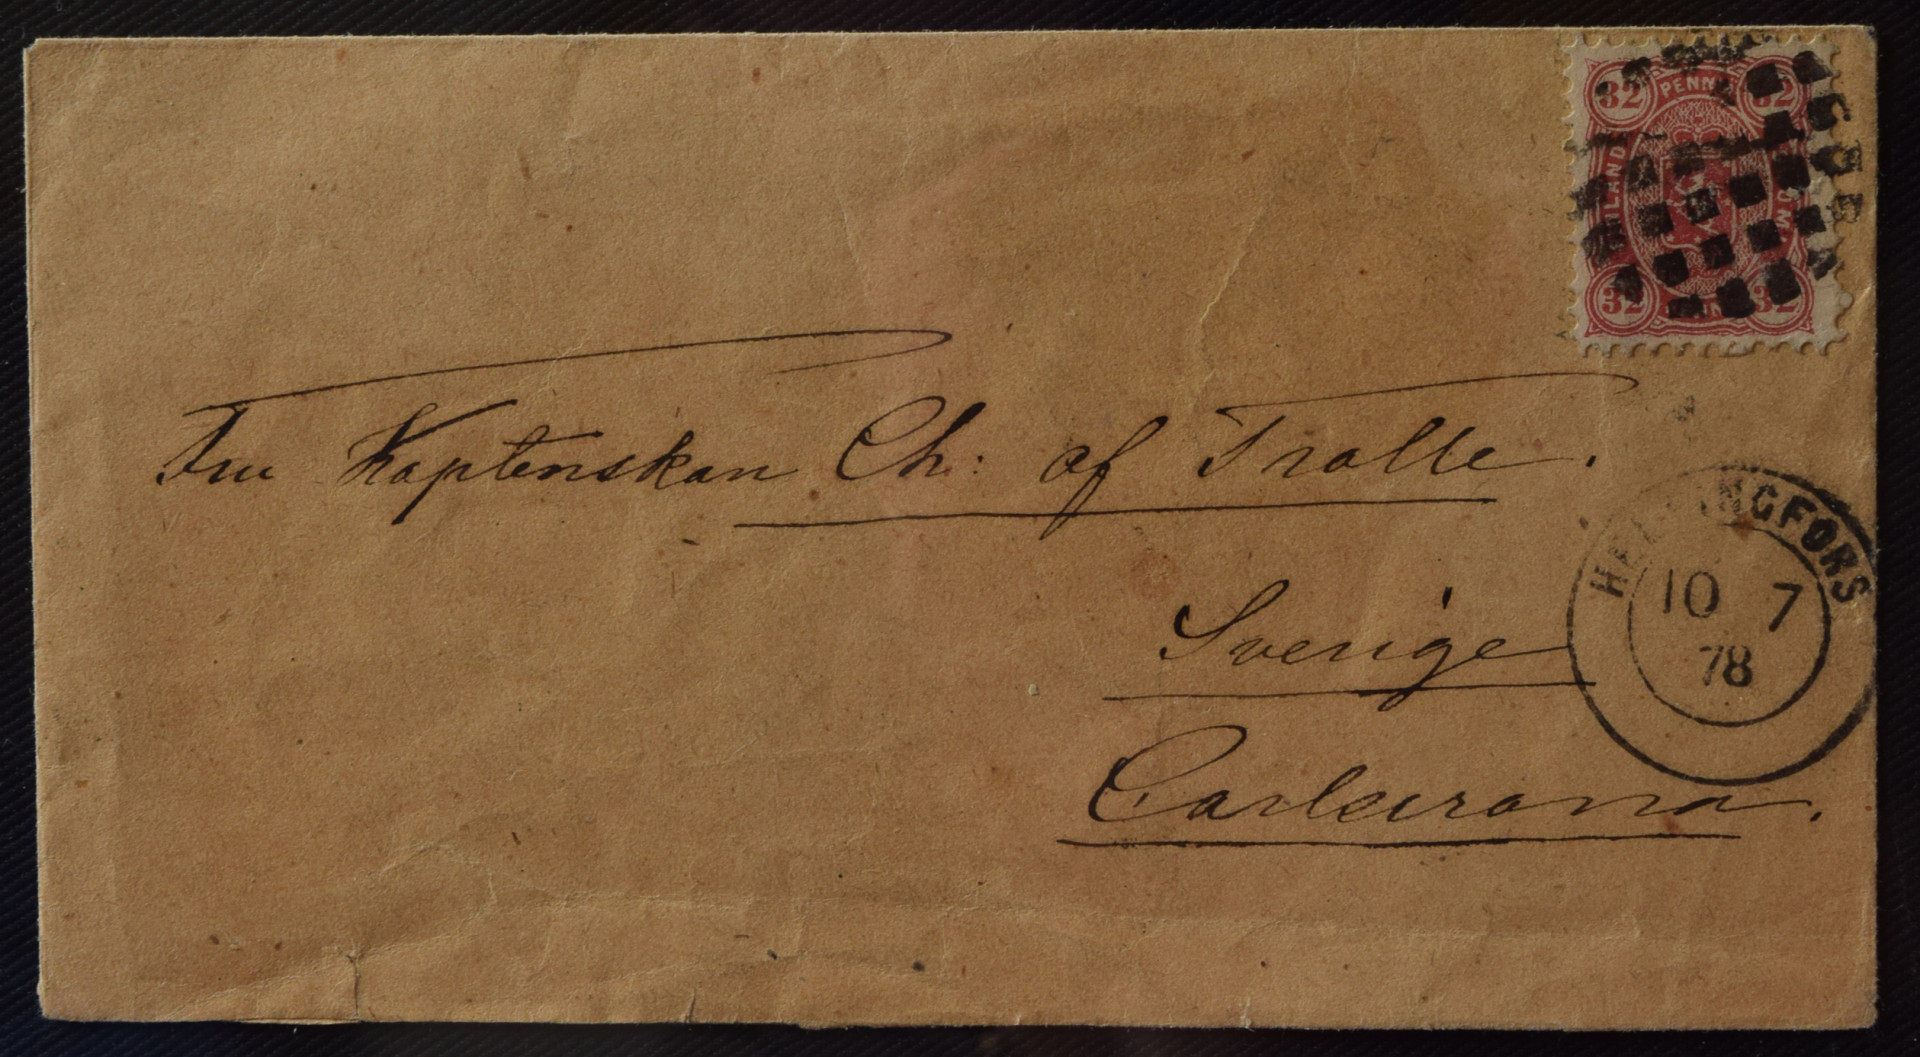 32 PENNI 32
FINLAND SUOMI
32 PENNIÄ 32
Fru Kaptenskan Ch: af Trolle.
HELSINGFORS
10 7
78
Sverige
Carlscrona.